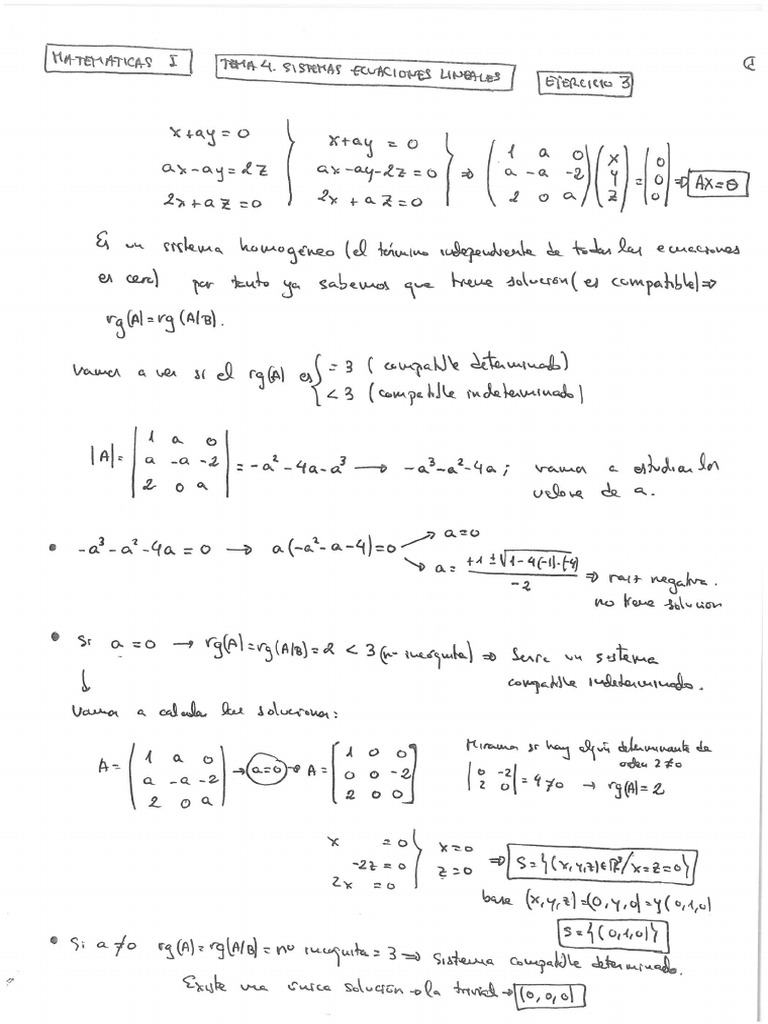 MATEMATICAS I   TEMA 4. SISTEMAS ECUACIONES LINEALES   EJERCICIO 3
x+ay=0 } x+ay=0 } ⇒ (1 a 0; a -a -2; 2 0 a) (x; y; z) = (0; 0; 0) ⇒ AX=θ
ax-ay=2z } ax-ay-2z=0
2x+az=0 } 2x+az=0
Es un sistema homogéneo (el término independiente de todas las ecuaciones
es cero) por tanto ya sabemos que tiene solución (es compatible) ⇒
rg(A)=rg(A/B).
Vamos a ver si el rg(A) es { =3 (compatible determinado)
<3 (compatible indeterminado)
|A|= |1 a 0; a -a -2; 2 0 a| = -a²-4a-a³ → -a³-a²-4a; vamos a estudiar los
valores de a.
• -a³-a²-4a=0 → a(-a²-a-4)=0 → a=0
→ a= +1±√1-4(-1)·(-4) / -2 ⇒ raiz negativa.
no tiene solucion
• Si a=0 → rg(A)=rg(A/B)=2<3 (nº incógnita) ⇒ Seria un sistema
compatible indeterminado.
↓
Vamos a calcular las soluciones:
A= (1 a 0; a -a -2; 2 0 a) → a=0 → A= [1 0 0; 0 0 -2; 2 0 0]
Miramos si hay algún determinante de
orden 2≠0
|0 -2; 2 0| =4≠0 → rg(A)=2
x =0 } x=0
-2z=0 } z=0 ⇒ S={(x,y,z)∈ℝ³/x=z=0}
2x =0
base (x,y,z)=(0,y,0)=y(0,1,0)
S={(0,1,0)}
• Si a≠0 rg(A)=rg(A/B)=no incognita=3 ⇒ sistema compatible determinado.
Existe una unica solución → la trivial → (0,0,0)